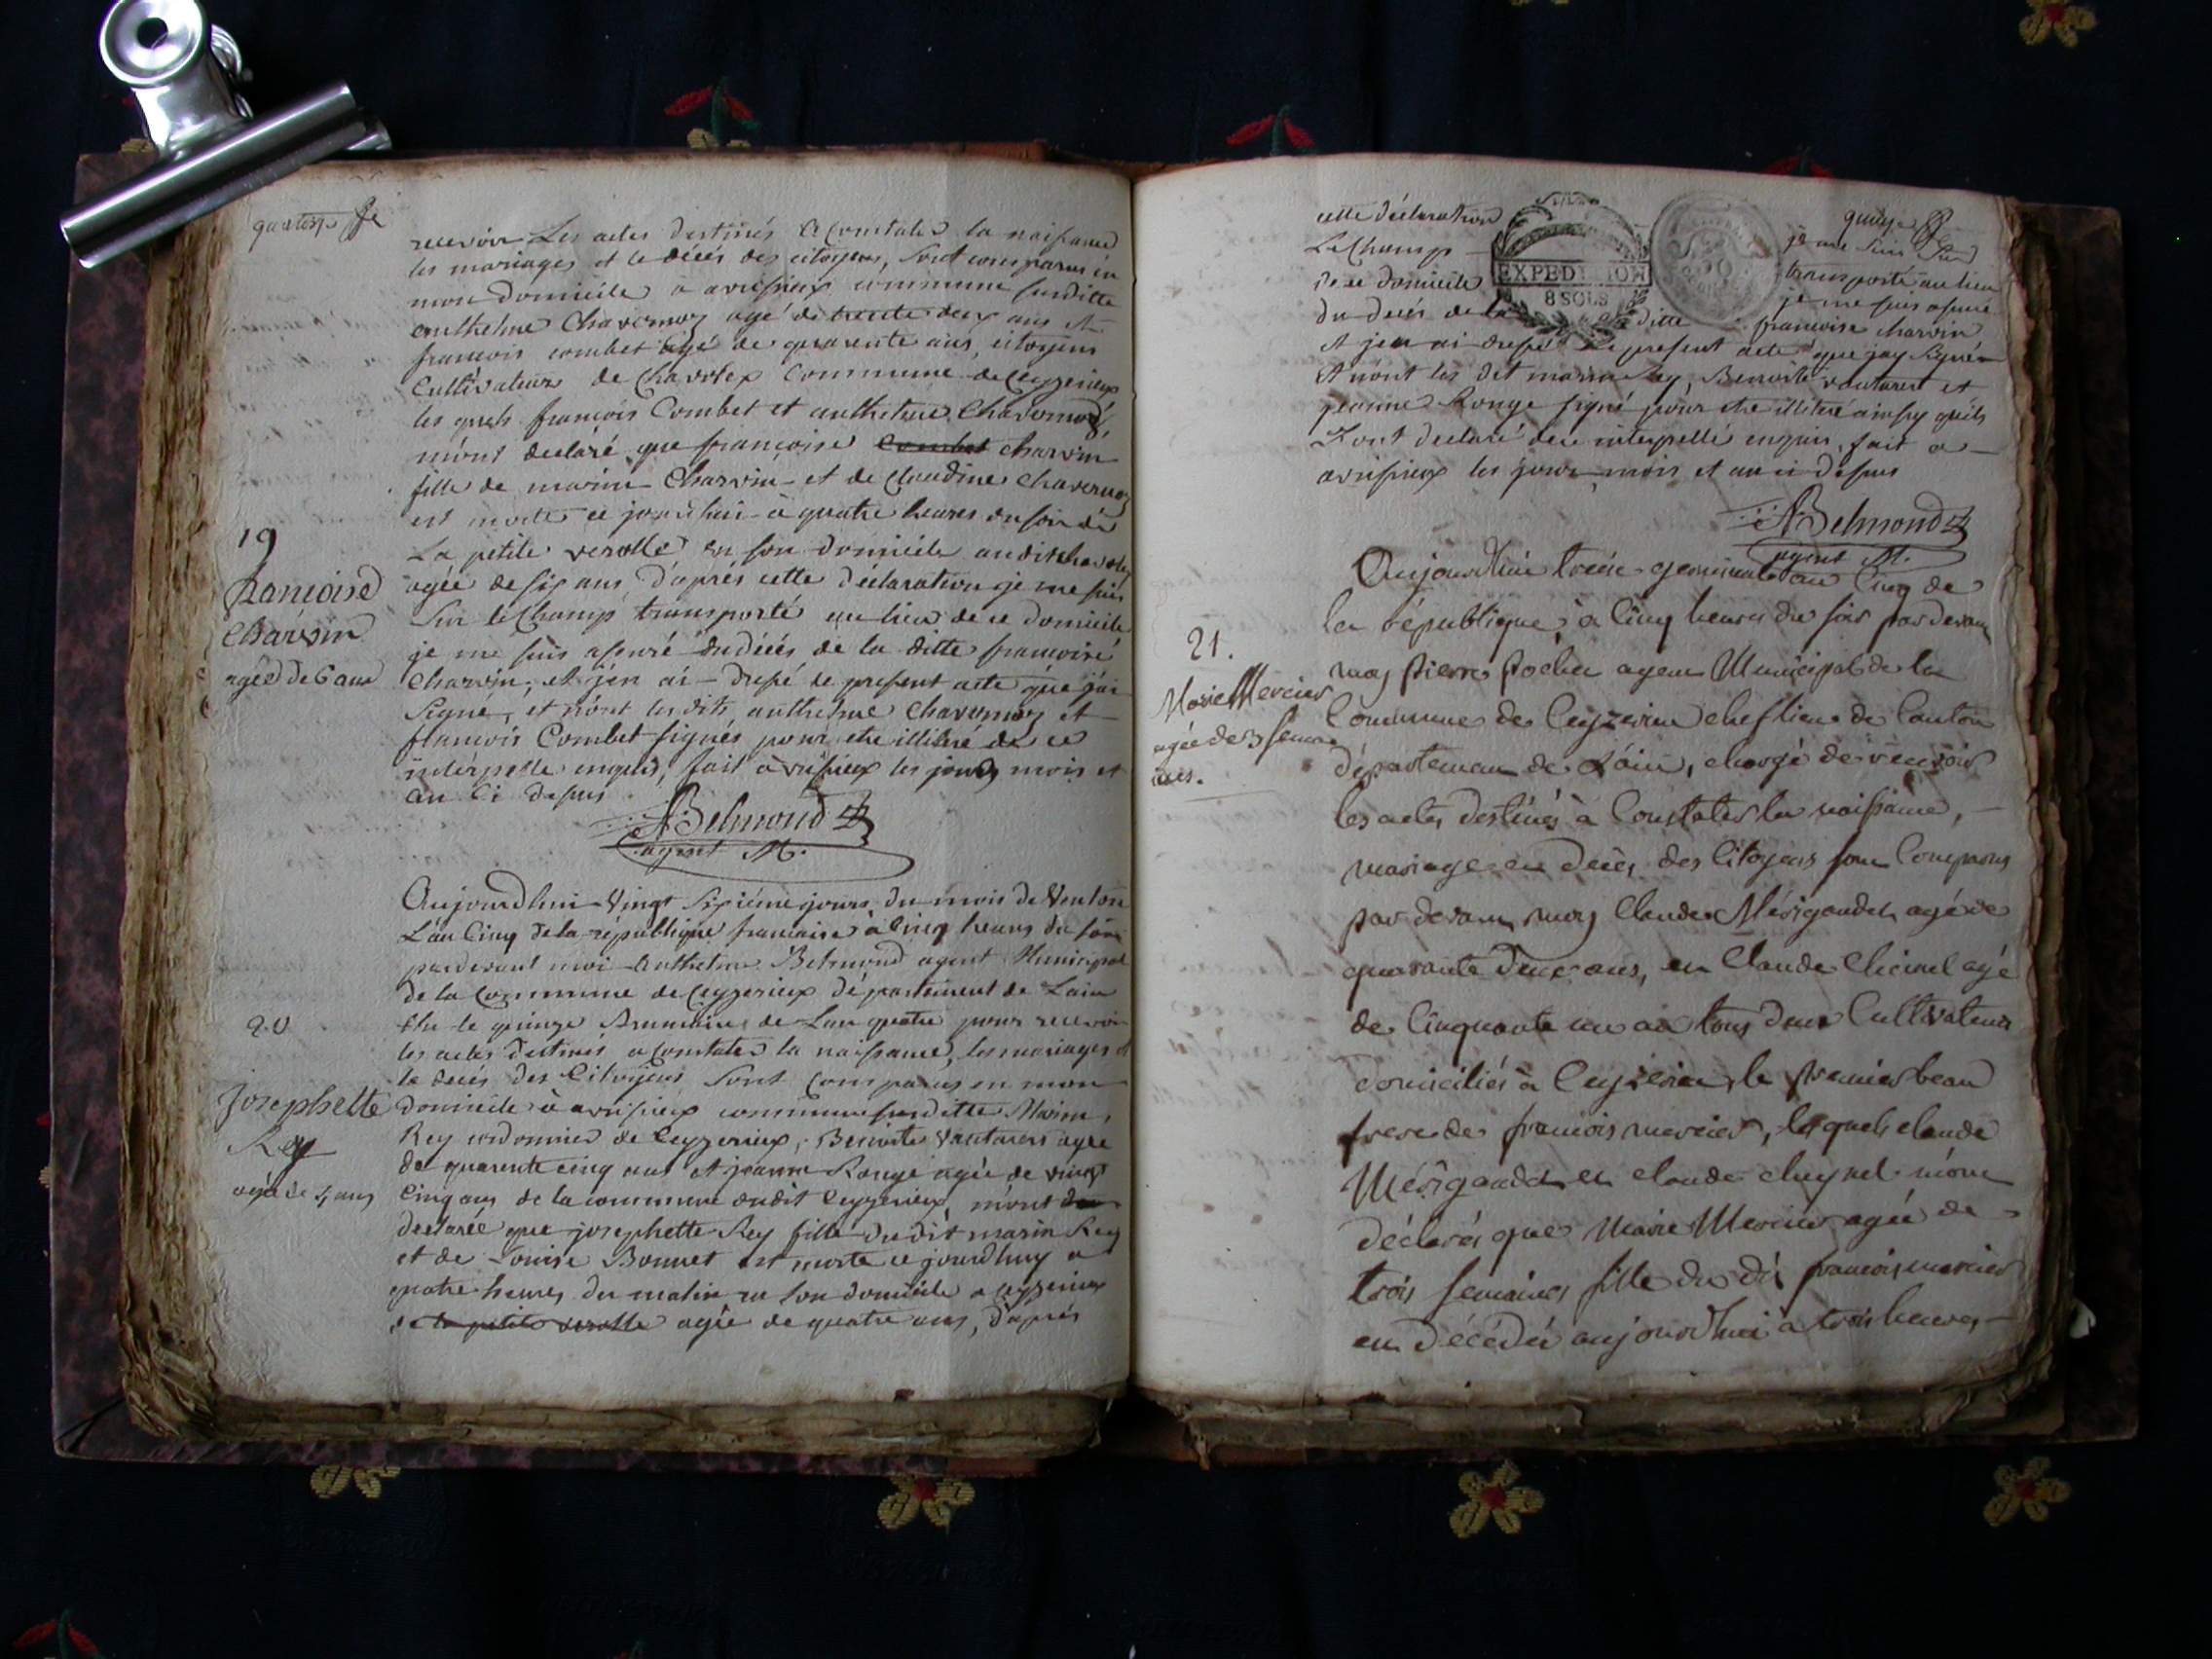 quatorze
recevoir Les actes destinés a Constater la naissance
les mariages et le décés des citoyens, sont comparus en
mon domicile a avrissieux commune susditte
anthelme Chavernoz agé de trente deux ans et
francois combet agé de quarente ans, citoyens
Cultivateurs de Chavolex Commune de Ceyzerieux
les quels françois Combet et anthelme Chavernoz
m'ont declaré que francoise Combet charvin
fille de marin Charvin et de Claudine Chavernoz
est morte ce jourdhui à quatre heures du soir de
La petite verolle en son domicile audit chavolex
agée de six ans, d'aprés cette déclaration je me suis
Sur le Champ transporté au lieu de ce domicile
je me suis assuré du décés de la ditte francoise
Charvin, et j'en ai dressé le present acte que j'ai
Signe, et n'ont les dits anthelme Chavernoz et
francois Combet signés pour etre illiteré de ce
interpelle enquis, fait à avrissieux les jours mois et
an Ci dessus
19
francoise
Charvin
agée de 6 ans
ABelmond
agent M.
Aujourdhui Vingt Sixiéme jours du mois de Ventose
L'an Cinq de la république francaise à Cinq heures du soir
pardevant moi Anthelme Belmond agent Municipal
de la Commune de Ceyzerieux département de Lain
Elu le quinze Brumaire de Lan quatre pour recevoir
les actes destinés a Constater la naissance, les mariages et
le decés des Citoyens Sont Comparus en mon
domicile à avrissieux commune susditte Marin
Rey cordonnier de Ceyzerieux, Benoite Vautaret agée
de quarente cinq ans et jeanne Rouge agée de vingt
Cinq ans de la commune dudit Ceyzerieux, m'ont
declarée que josephette Rey fille du dit marin Rey
et de Louise Bonnet est morte ce jourdhuy a
quatre heures du matin en son domicile a Ceyzerieux
de la petite verolle agée de quatre ans, d'aprés
20
Josephette
Rey
agée de 4 ans
quinze
cette déclaration je me suis Sur
Le Champ transporté au lieu
de ce domicile je me suis assuré
EXPEDITION
8 SOLS
du decés de la ditte francoise charvin
et j'en ai dressé le present acte que jay Signé
et n'ont les dit marin Rey, Benoite vautaret et
jeanne Rouge signé pour etre illiteré ainsy qu'ils
L'ont declaré de ce interpellé enquis, fait a
avrissieux les jours mois et an ci dessus
ABelmond
agent M.
Aujourdhui treize germinal an Cinq de
la république, à Cinq heures du soir par devant
moy pierre pochet agent Municipal de la
Commune de Ceyzerieu cheflieu de Canton
département de L'ain, chargé de recevoir
les actes destinés à Constater la naissance,
mariage et décés des Citoyens sont Comparus
par devant moy Claude Mérigaudet agé de
quarante deux ans, et Claude Cheinel agé
de Cinquante un an tous deux Cultivateurs
domiciliés à Ceyzerieu, le premier beau
frere de francois mercier, lesquels claude
Mérigaudet et claude cheynel m'ont
déclarés que Marie Mercier agée de
trois semaines fille du dit francois mercier
est décédée aujourdhui à trois heures
21.
Marie Mercier
agée de 3 semai
nes.